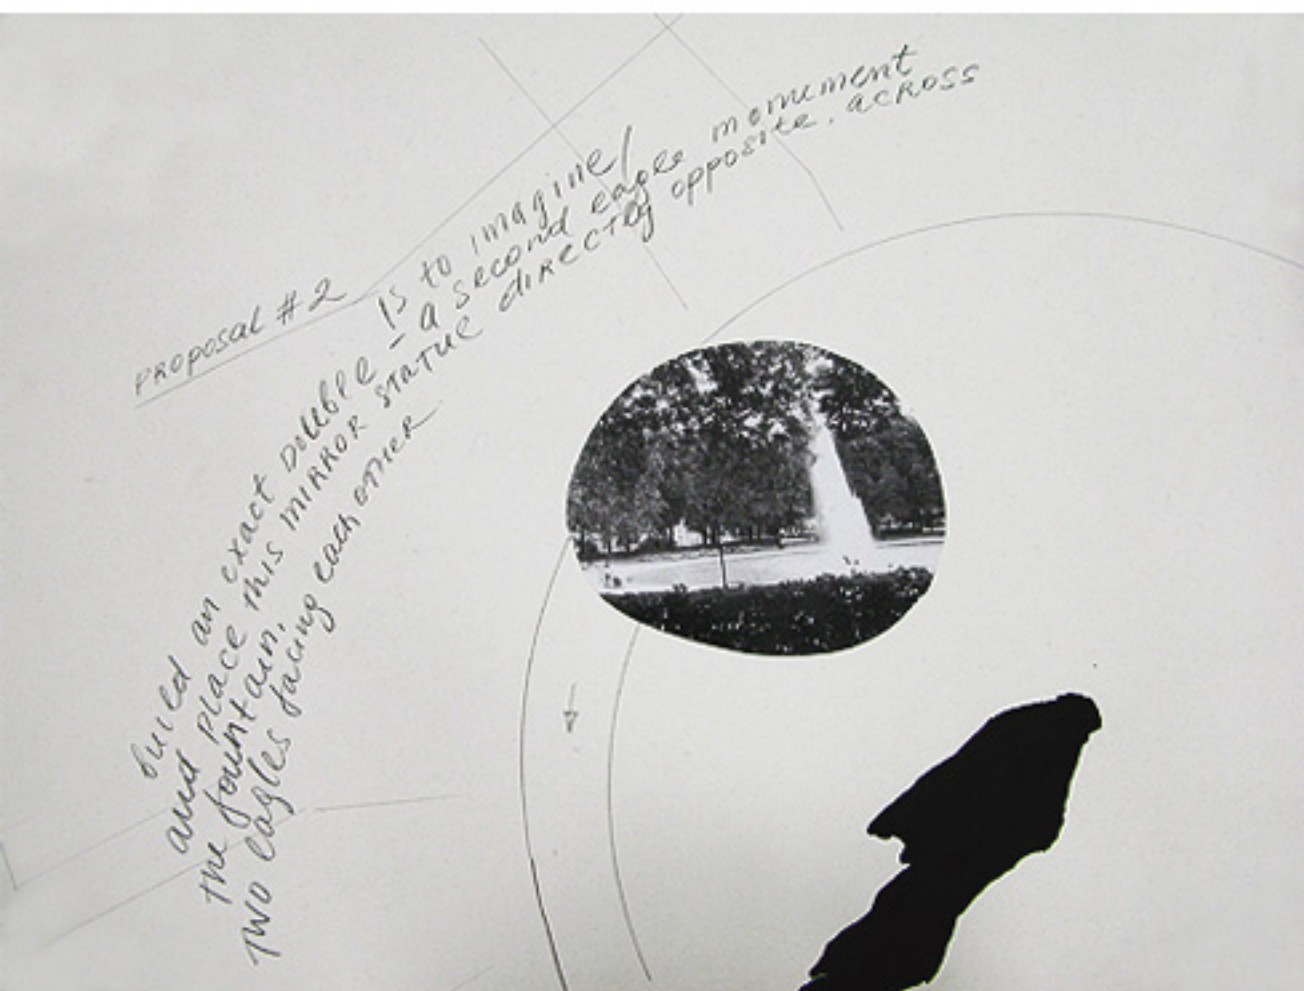 PROPOSAL #2
is to imagine/
build an exact double - a second eagle monument
and place this mirror statue directly opposite. across
the fountain,
two eagles facing each other